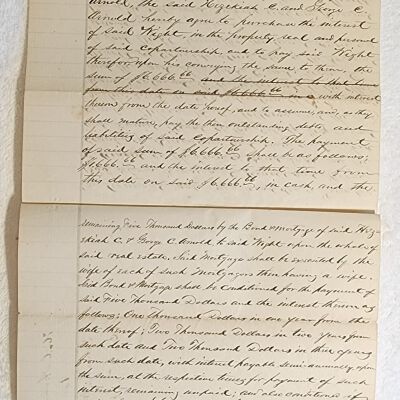 Arnold, the said Hezekiah C. and George C.
Arnold hereby agree to purchase the interest
of said Wight, in the property, real and personal
of said copartnership, and to pay said Wight
therefor, upon his conveying the same to them, the
sum of $6,666.66 and the interest to that time
from this date on said $6666.66 in c with interest
thereon from the date hereof, and to assume, and, as they
shall mature, pay the then outstanding debts and
liabilities of said Copartnership. The payment
of said sum of $6,666.66 shall be as follows;
$1666.66 and the interest to that time from
this date on said $6,666.66, in cash, and the
remaining Five Thousand Dollars by the Bond & Mortgage of said Hez-
ekiah C. & George C. Arnold to said Wight upon the whole of
said real estate. Said Mortgage shall be executed by the
wife of each of such Mortgagors then having a wife.
Said Bond & Mortgage shall be conditioned for the payment of
said Five Thousand Dollars and the interest thereon as
follows; One Thousand Dollars in one year from the
date thereof; Two Thousand Dollars in two years from
such date and Two Thousand Dollars in three years
from such date, with interest payable semi-annually upon
the sum, at the respective times for payment of such
interest, remaining unpaid; and also conditioned if